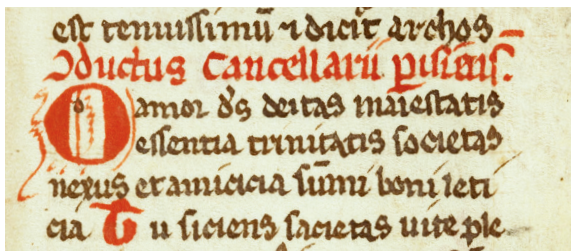 est tenuissimū ⁊ dicit᷑ archos
Ↄductus Cancellarii p̲isiēsis.
O amor dˢ deitas maiestatis
essentia trinitatis societas
nexus et amicicia sūmi boni leti
cia Tu siciens sacietas uite ple